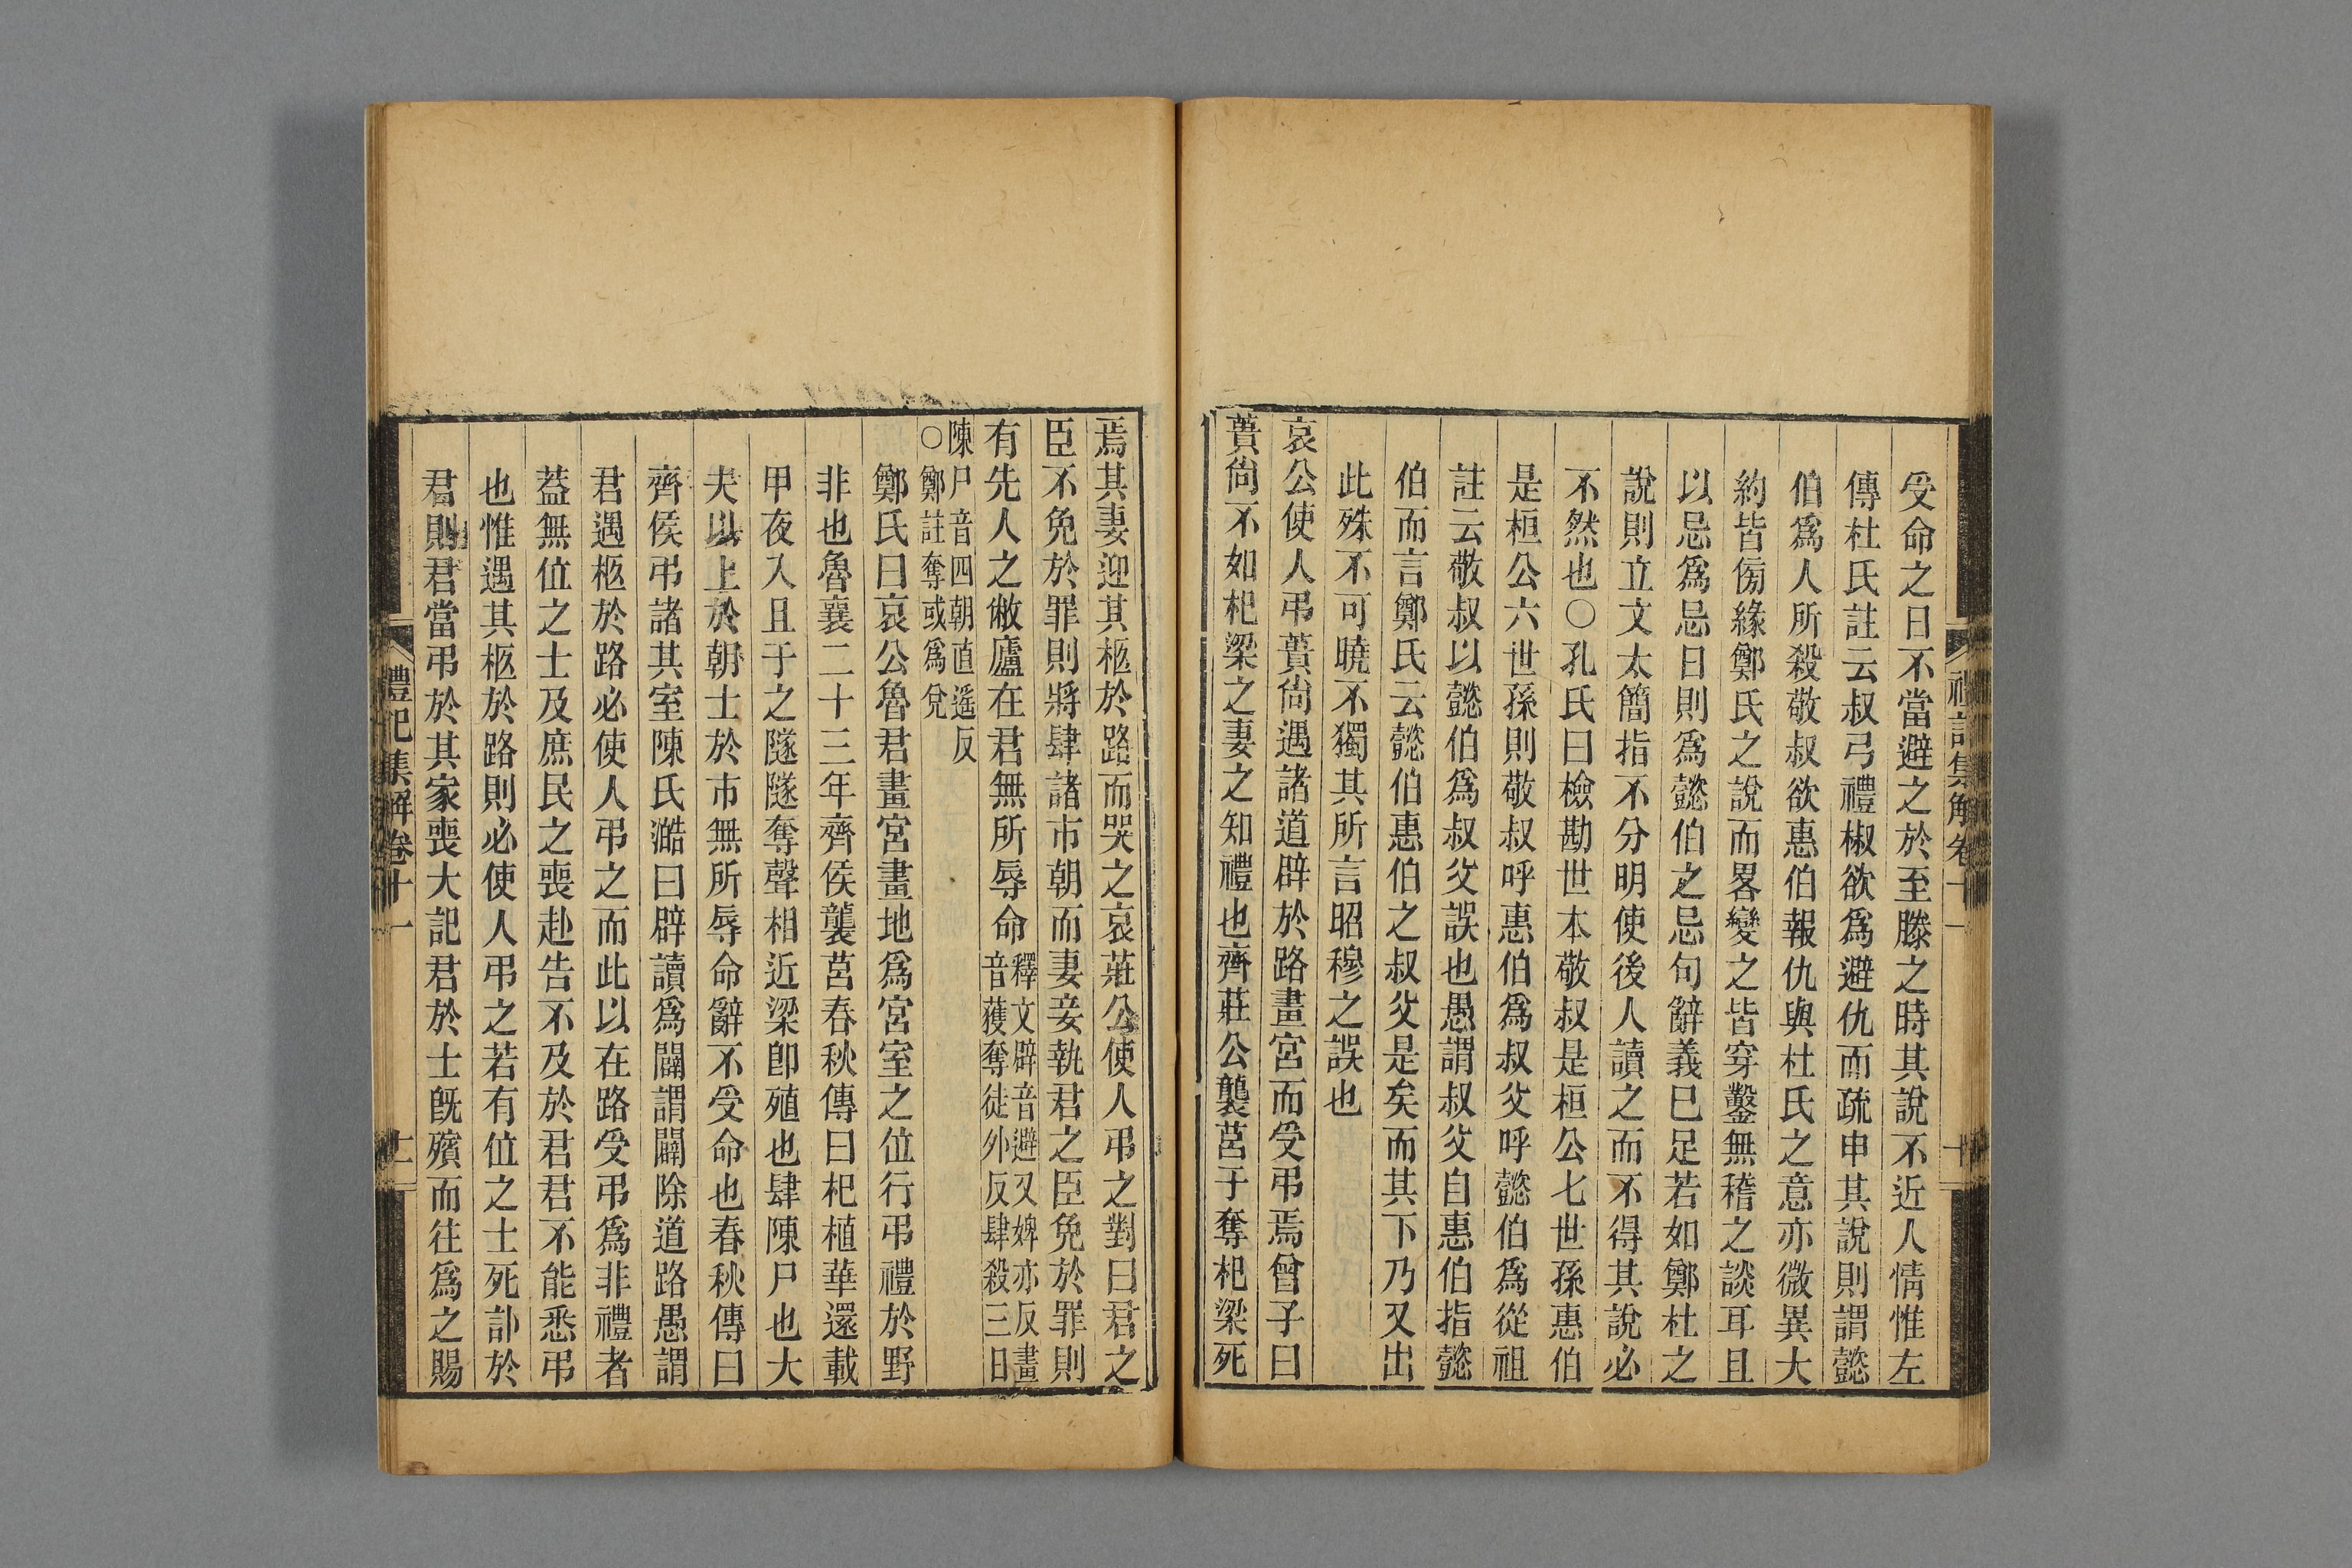 受命之日不當避之於至滕之時其說不近人情惟左
傳杜氏註云叔弓禮椒欲爲避仇而疏申其說則謂懿
伯爲人所殺敬叔欲惠伯報仇與杜氏之意亦微異大
約皆傍緣鄭氏之說而畧變之皆穿鑿無稽之談耳且
以忌爲忌日則爲懿伯之忌句辭義已足若如鄭杜之
說則立文太簡指不分明使後人讀之而不得其說必
不然也○孔氏曰檢勘世本敬叔是桓公七世孫惠伯
是桓公六世孫則敬叔呼惠伯爲叔父呼懿伯爲從祖
註云敬叔以懿伯爲叔父誤也愚謂叔父自惠伯指懿
伯而言鄭氏云懿伯惠伯之叔父是矣而其下乃又出
此殊不可曉不獨其所言昭穆之誤也
哀公使人弔蕢尙遇諸道辟於路畫宮而受弔焉曾子曰
蕢尙不如杞梁之妻之知禮也齊莊公襲莒于奪杞梁死
禮記集解卷十一 十
焉其妻迎其柩於路而哭之哀莊公使人弔之對曰君之
臣不免於罪則將肆諸市朝而妻妾執君之臣免於罪則
有先人之敝廬在君無所辱命釋文辟音避又婢亦反畫
音獲奪徒外反肆殺三日
陳尸音四朝直遥反
○鄭註奪或爲兌
鄭氏曰哀公魯君畫宮畫地爲宮室之位行弔禮於野
非也魯襄二十三年齊侯襲莒春秋傳曰杞植華還載
甲夜入且于之隧隧奪聲相近梁卽殖也肆陳尸也大
夫以上於朝士於市無所辱命辭不受命也春秋傳曰
齊侯弔諸其室陳氏澔曰辟讀爲闢謂闢除道路愚謂
君遇柩於路必使人弔之而此以在路受弔爲非禮者
葢無位之士及庶民之喪赴告不及於君君不能悉弔
也惟遇其柩於路則必使人弔之若有位之士死訃於
君則君當弔於其家喪大記君於士旣殯而往爲之賜
禮記集解卷十一 十一